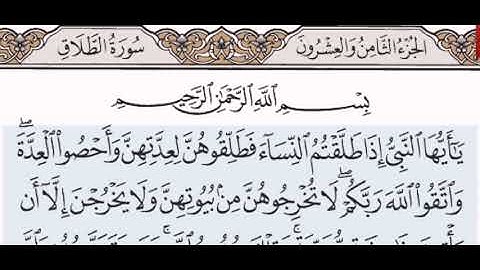 الجزء الثامن والعشرون
سورة الطلاق
بِسْمِ ٱللَّهِ ٱلرَّحْمَٰنِ ٱلرَّحِيمِ
يَٰٓأَيُّهَا ٱلنَّبِيُّ إِذَا طَلَّقْتُمُ ٱلنِّسَآءَ فَطَلِّقُوهُنَّ لِعِدَّتِهِنَّ وَأَحْصُواْ ٱلْعِدَّةَۖ
وَٱتَّقُواْ ٱللَّهَ رَبَّكُمْۖ لَا تُخْرِجُوهُنَّ مِنۢ بُيُوتِهِنَّ وَلَا يَخْرُجْنَ إِلَّآ أَن